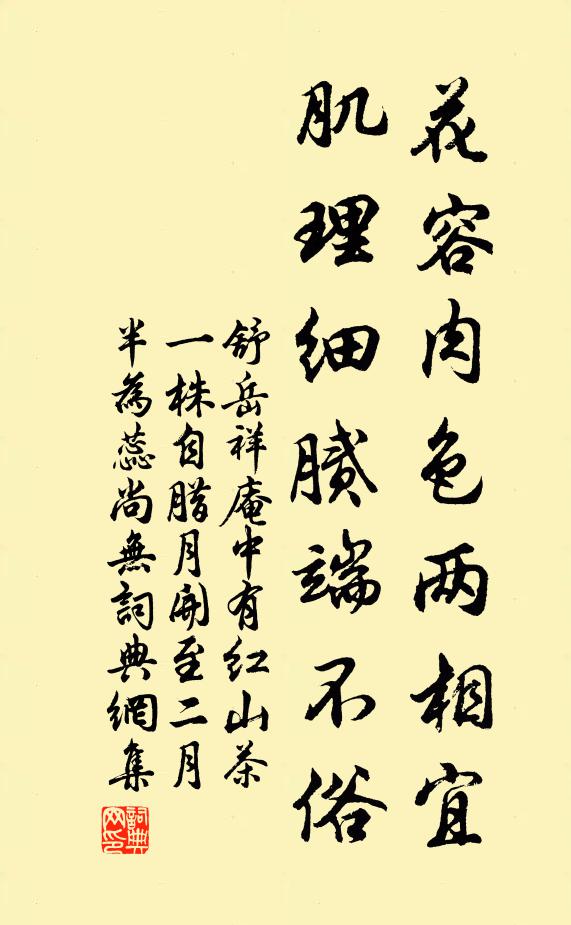 花容肉色两相宜
肌理细腻端不俗
舒岳祥庵中有红山茶
一株自腊月開至二月
半為蕊尚無詞典網集
詞典網印